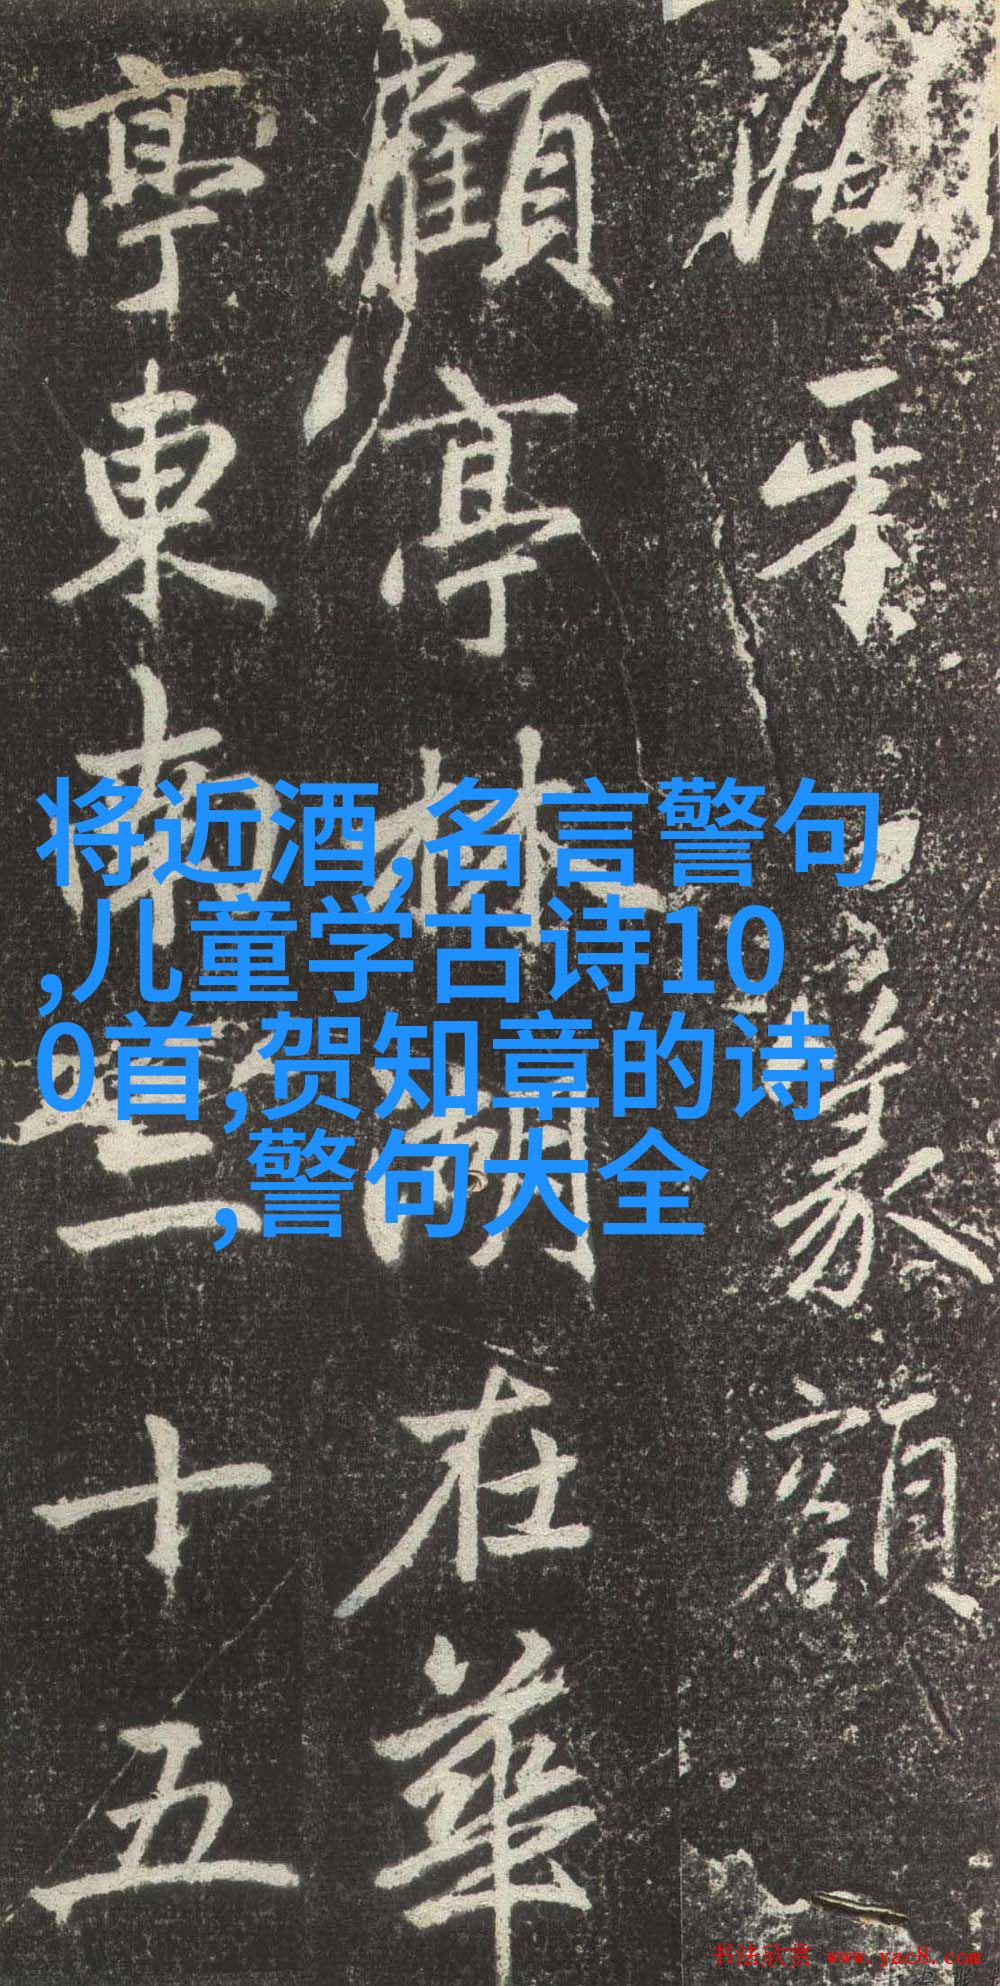 海平□篆額
顧亭林湖在華
亭東南三十五
将近酒,名言警句
,儿童学古诗10
0首,贺知章的诗
,警句大全
书法欣赏 www.yac8.com